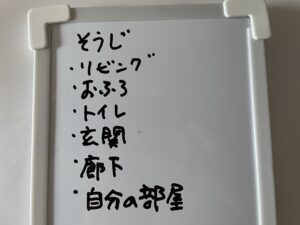 そうじ
・リビング
・おふろ
・トイレ
・玄関
・廊下
・自分の部屋